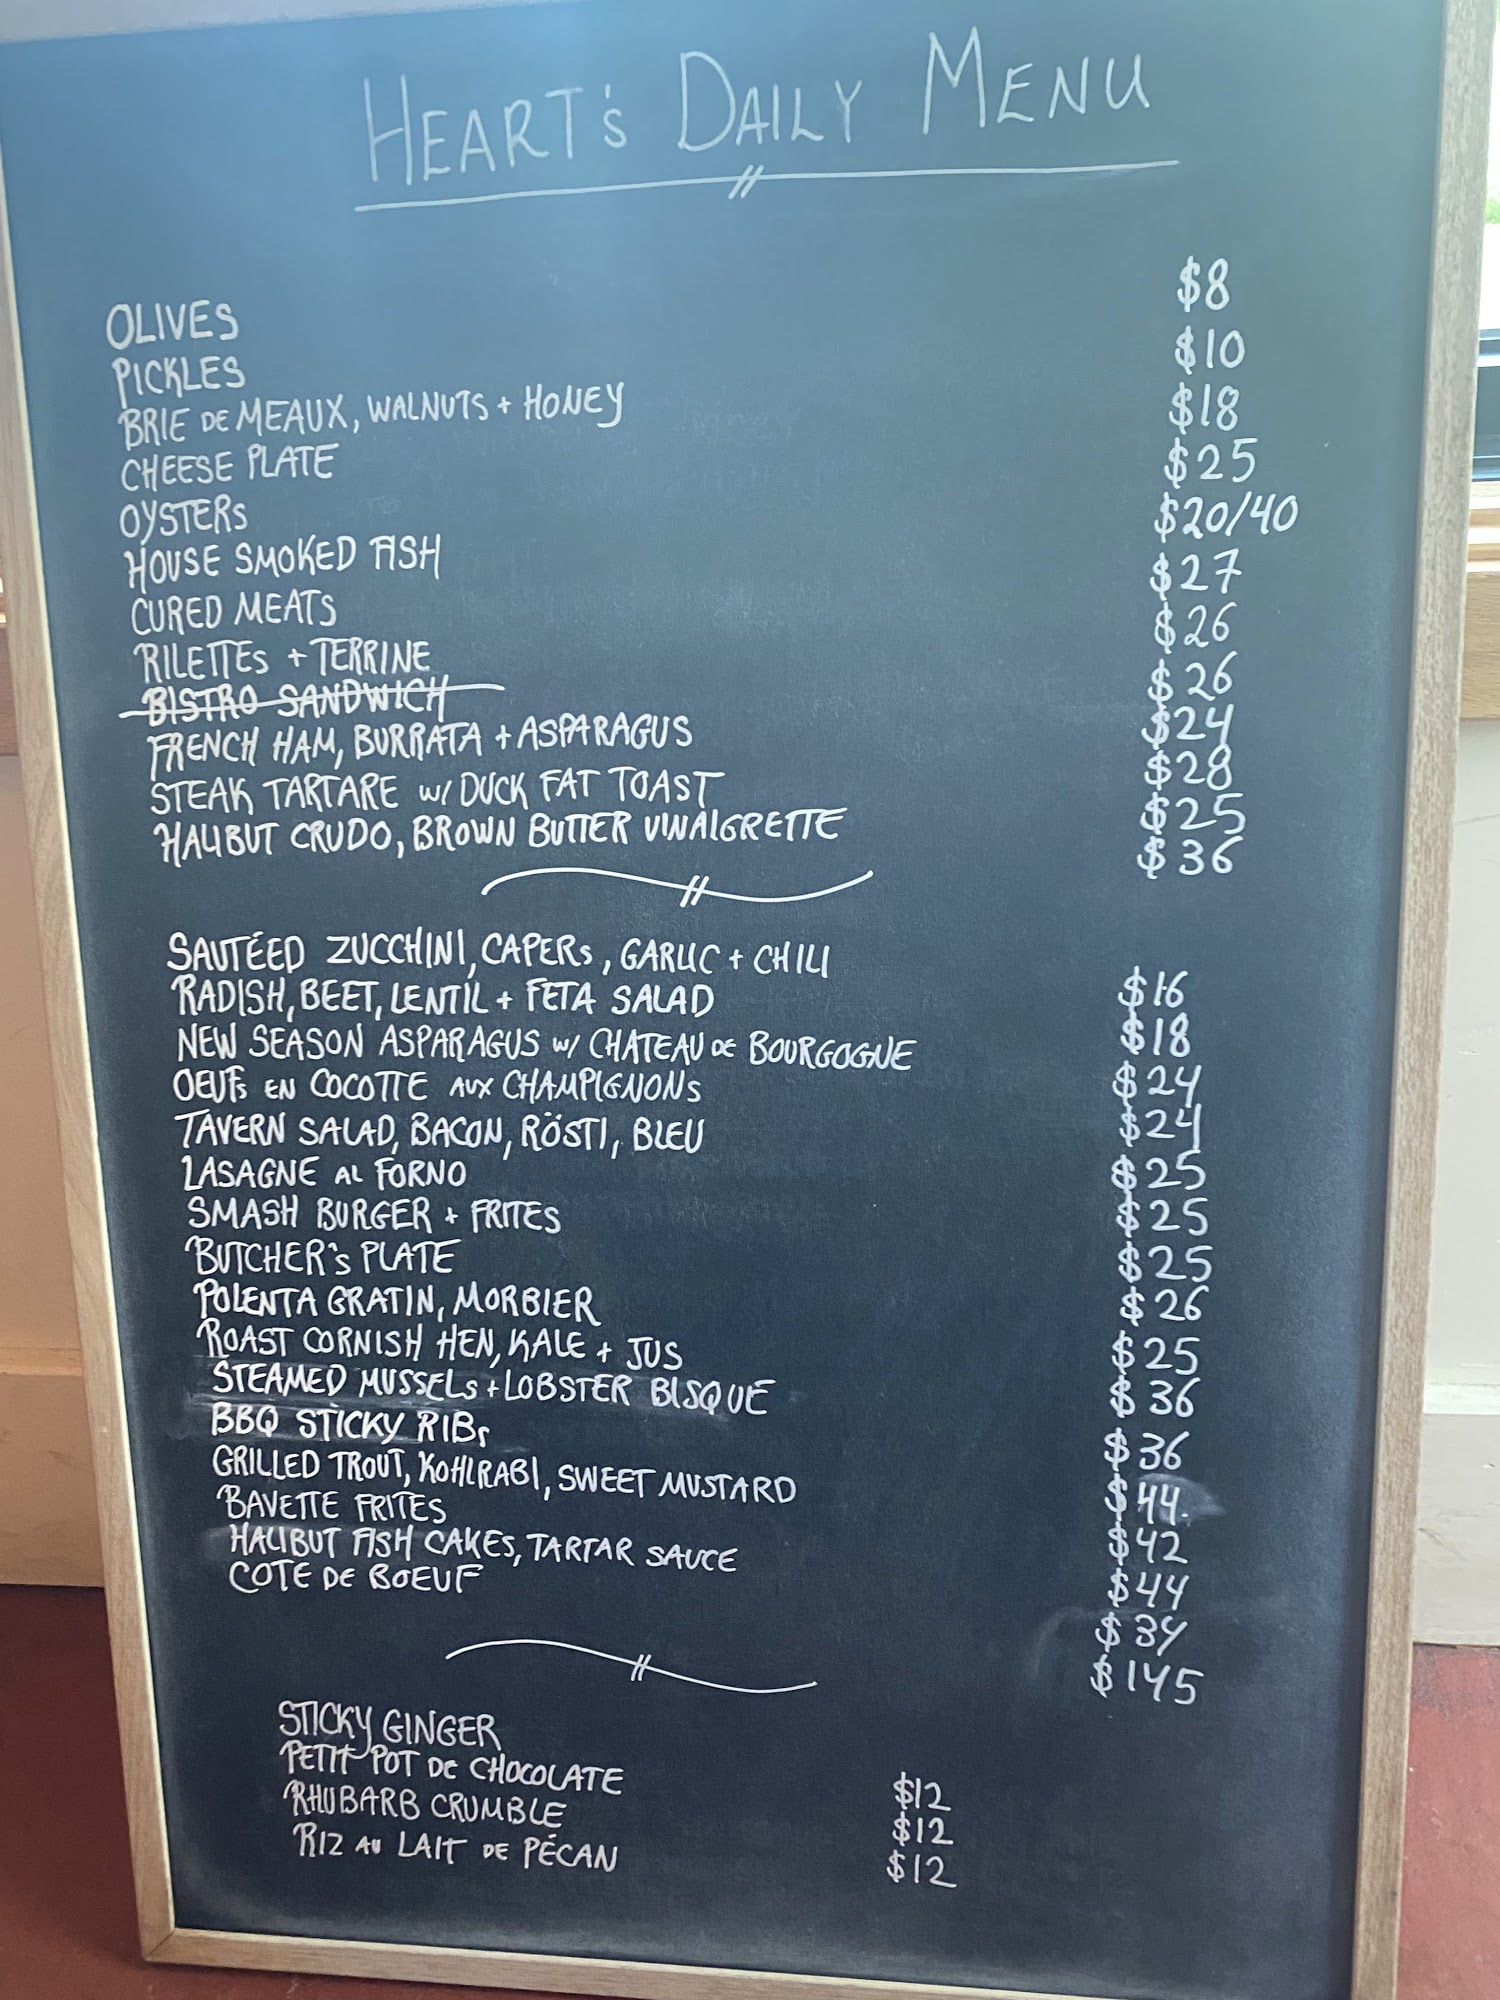 HEART's DAILY MENU
OLIVES $8
PICKLES $10
BRIE DE MEAUX, WALNUTS + HONEY $18
CHEESE PLATE $25
OYSTERS $20/40
HOUSE SMOKED FISH $27
CURED MEATS $26
RILETTES + TERRINE $26
BISTRO SANDWICH $24
FRENCH HAM, BURRATA + ASPARAGUS $28
STEAK TARTARE w/ DUCK FAT TOAST $25
HALIBUT CRUDO, BROWN BUTTER VINAIGRETTE $36
SAUTÉED ZUCCHINI, CAPERS, GARLIC + CHILI $16
RADISH, BEET, LENTIL + FETA SALAD $18
NEW SEASON ASPARAGUS w/ CHATEAU DE BOURGOGNE $24
OEUFS EN COCOTTE AUX CHAMPIGNONS $24
TAVERN SALAD, BACON, RÖSTI, BLEU $25
LASAGNE AL FORNO $25
SMASH BURGER + FRITES $25
BUTCHER'S PLATE $26
POLENTA GRATIN, MORBIER $25
ROAST CORNISH HEN, KALE + JUS $36
STEAMED MUSSELS + LOBSTER BISQUE $36
BBQ STICKY RIBS $44
GRILLED TROUT, KOHLRABI, SWEET MUSTARD $42
BAVETTE FRITES $44
HALIBUT FISH CAKES, TARTAR SAUCE $39
COTE DE BOEUF $145
STICKY GINGER $12
PETIT POT DE CHOCOLATE $12
RHUBARB CRUMBLE $12
RIZ AU LAIT DE PÉCAN